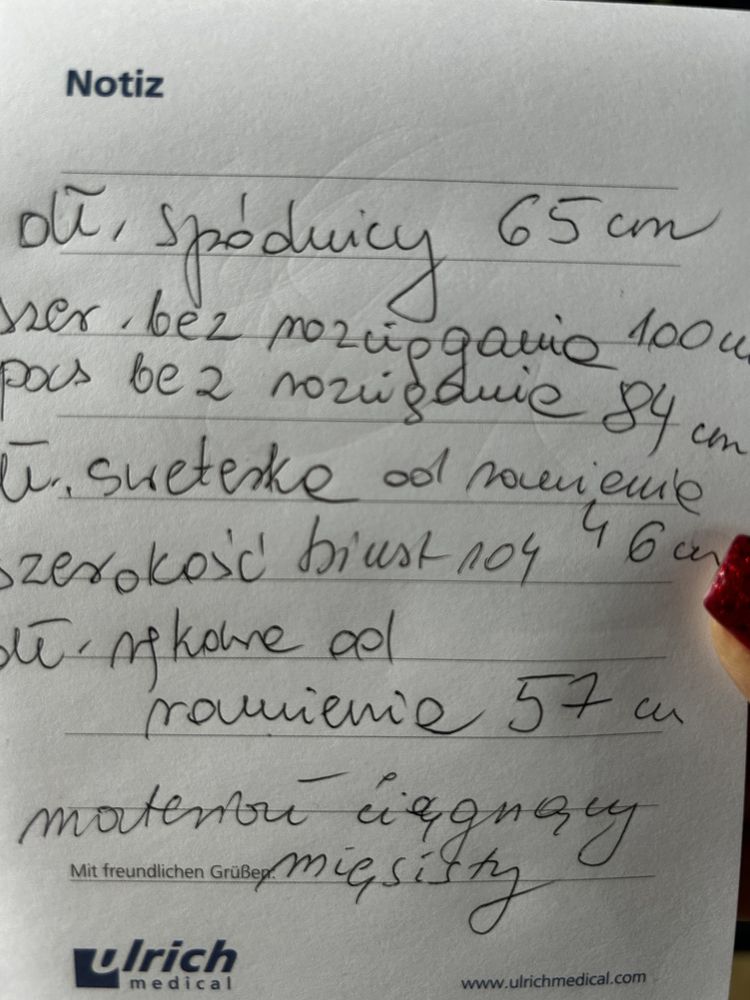 Notiz
dł. spódnicy 65 cm
szer. bez rozciągania 100 cm
pas bez rozciągania 84 cm
dł. sweterka od ramienia
46 cm
szerokość biust 104
dł. rękawa od
ramienia 57 cm
materiał - ciągnący
mięsisty
Mit freundlichen Grüßen
ulrich
medical
www.ulrichmedical.com